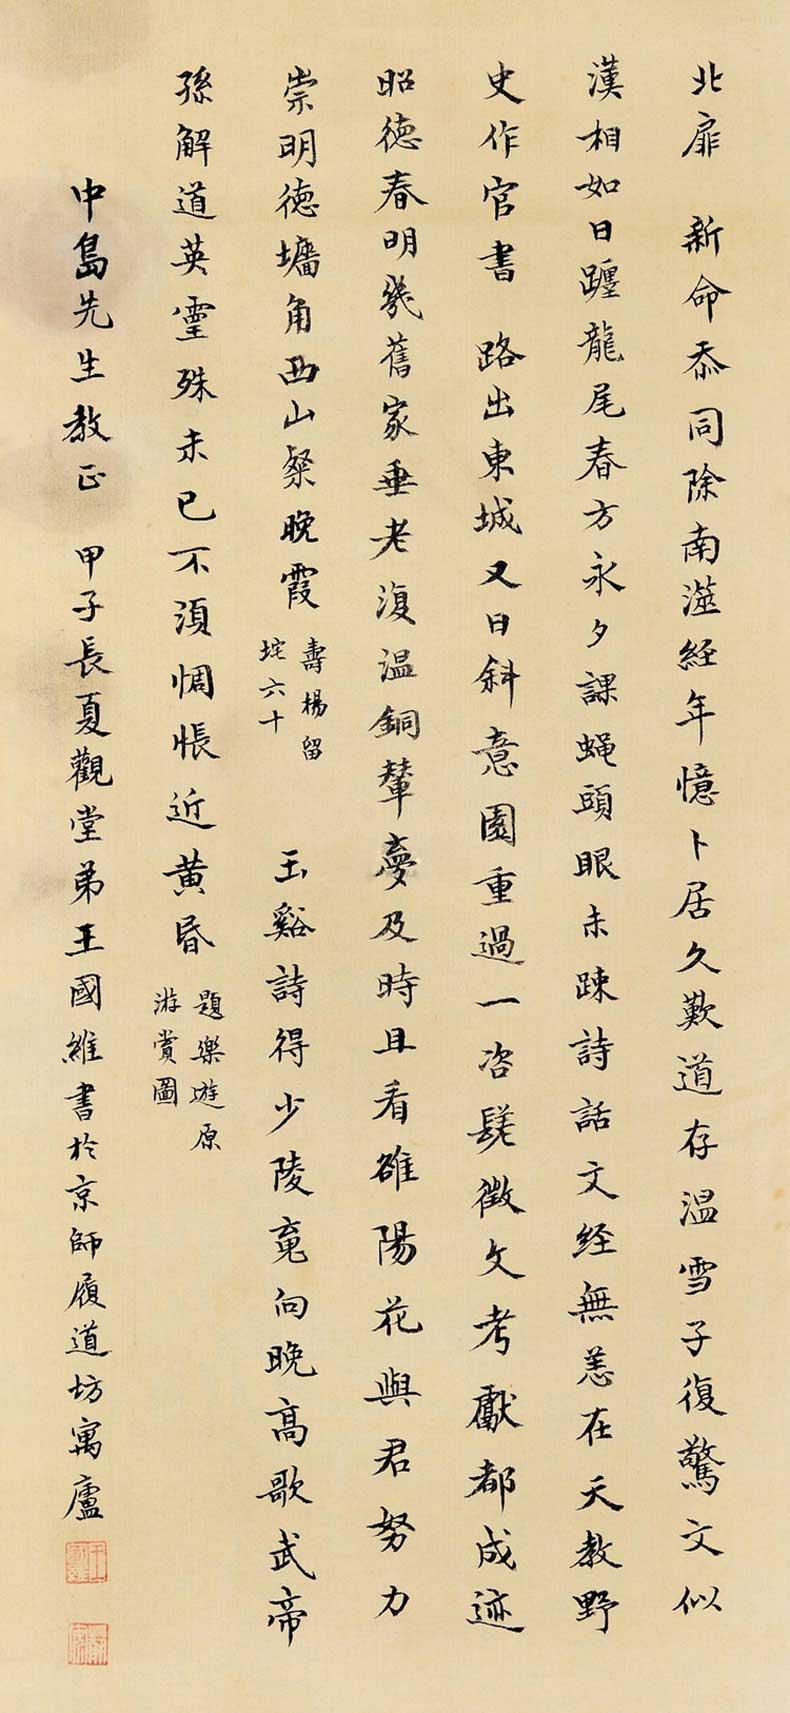 北扉　新命忝同除南澨經年憶卜居久歎道存温雪子復驚文似
漢相如日躔龍尾春方永夕課蝇頭眼未踈詩話文經無恙在天教野
史作官書　路出東城又日斜意園重過一咨嗟徵文考獻都成迹
昭德春明幾舊家垂老復温銅輦夢及時且看雒陽花與君努力
崇明德墻角西山粲晚霞
壽楊留
垞六十
玉谿詩得少陵䰟向晚高歌武帝
孫解道英靈殊未已不須惆悵近黄昏
題樂遊原
游賞圖
中島先生教正　甲子長夏觀堂弟王國維書於京師履道坊寓廬